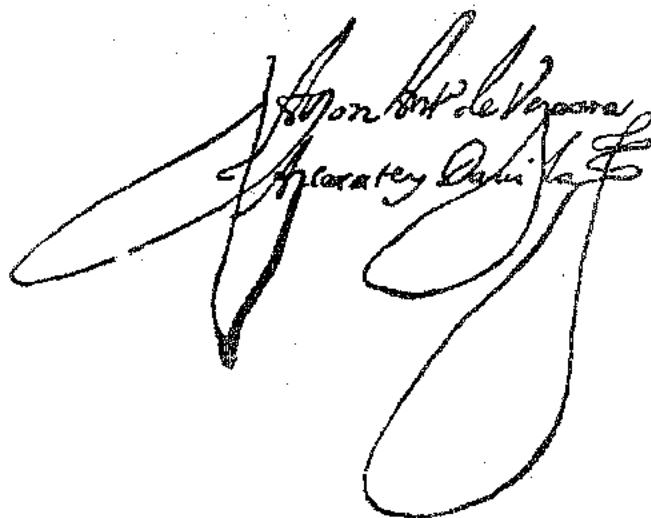 Anton Antº de Vergara
Azcarate y Davila